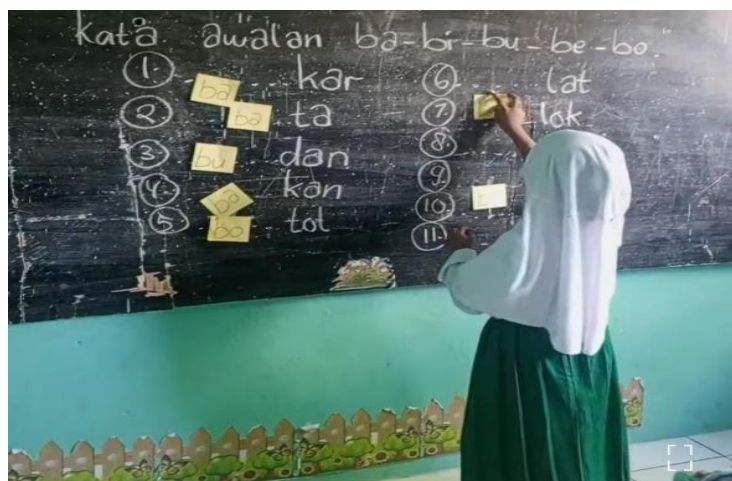 kata awalan ba-bi-bu-be-bo
1. ba kar
2. ba ta
3. bu dan
4. ba kan
5. bo tol
6. lat
7. lok
8.
9.
10.
11.